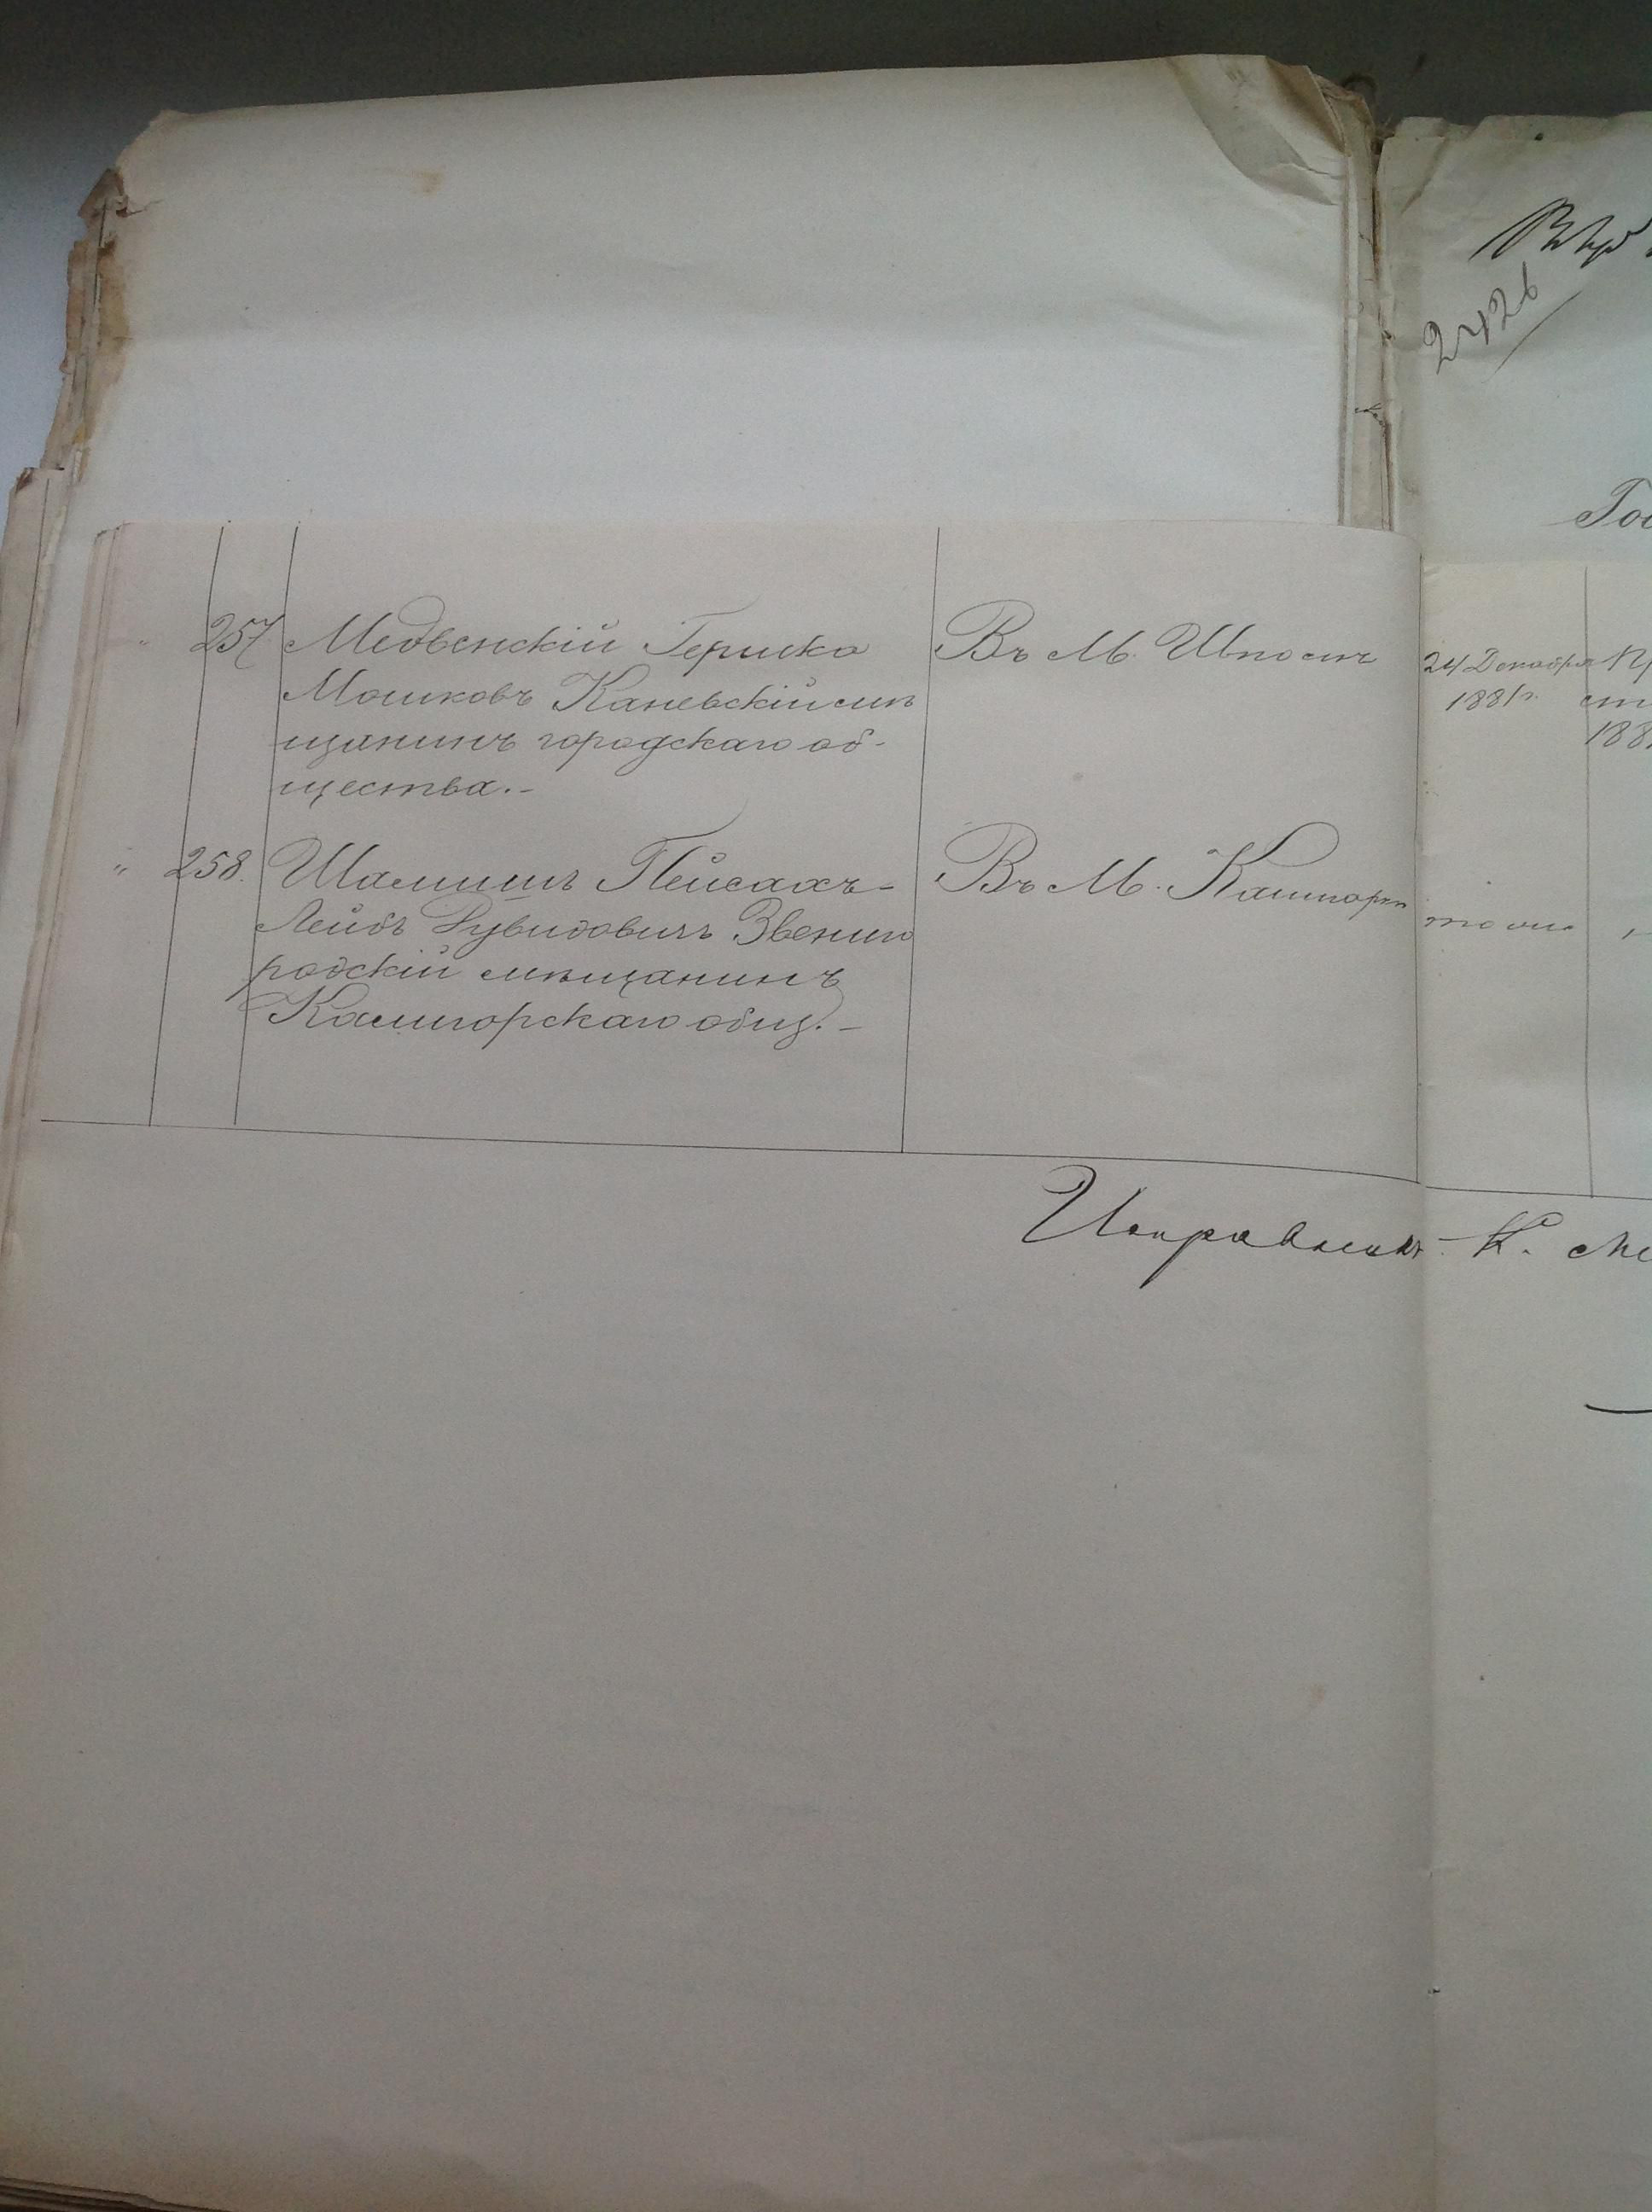 2426
Гос
257 Медвенскій Гершко
Мошковъ Каневскій мѣ
щанинъ городскаго об-
щества.-
Въ М.
24 Декабря
1881г.
188
" 258. Шамишъ Пейсахъ-
Лейбъ Рувидовичъ Звениго
родскій мѣщанинъ
Кашгорскаго общ.-
Въ М. Кашгорѣ
тоже
Исправникъ К. Ме